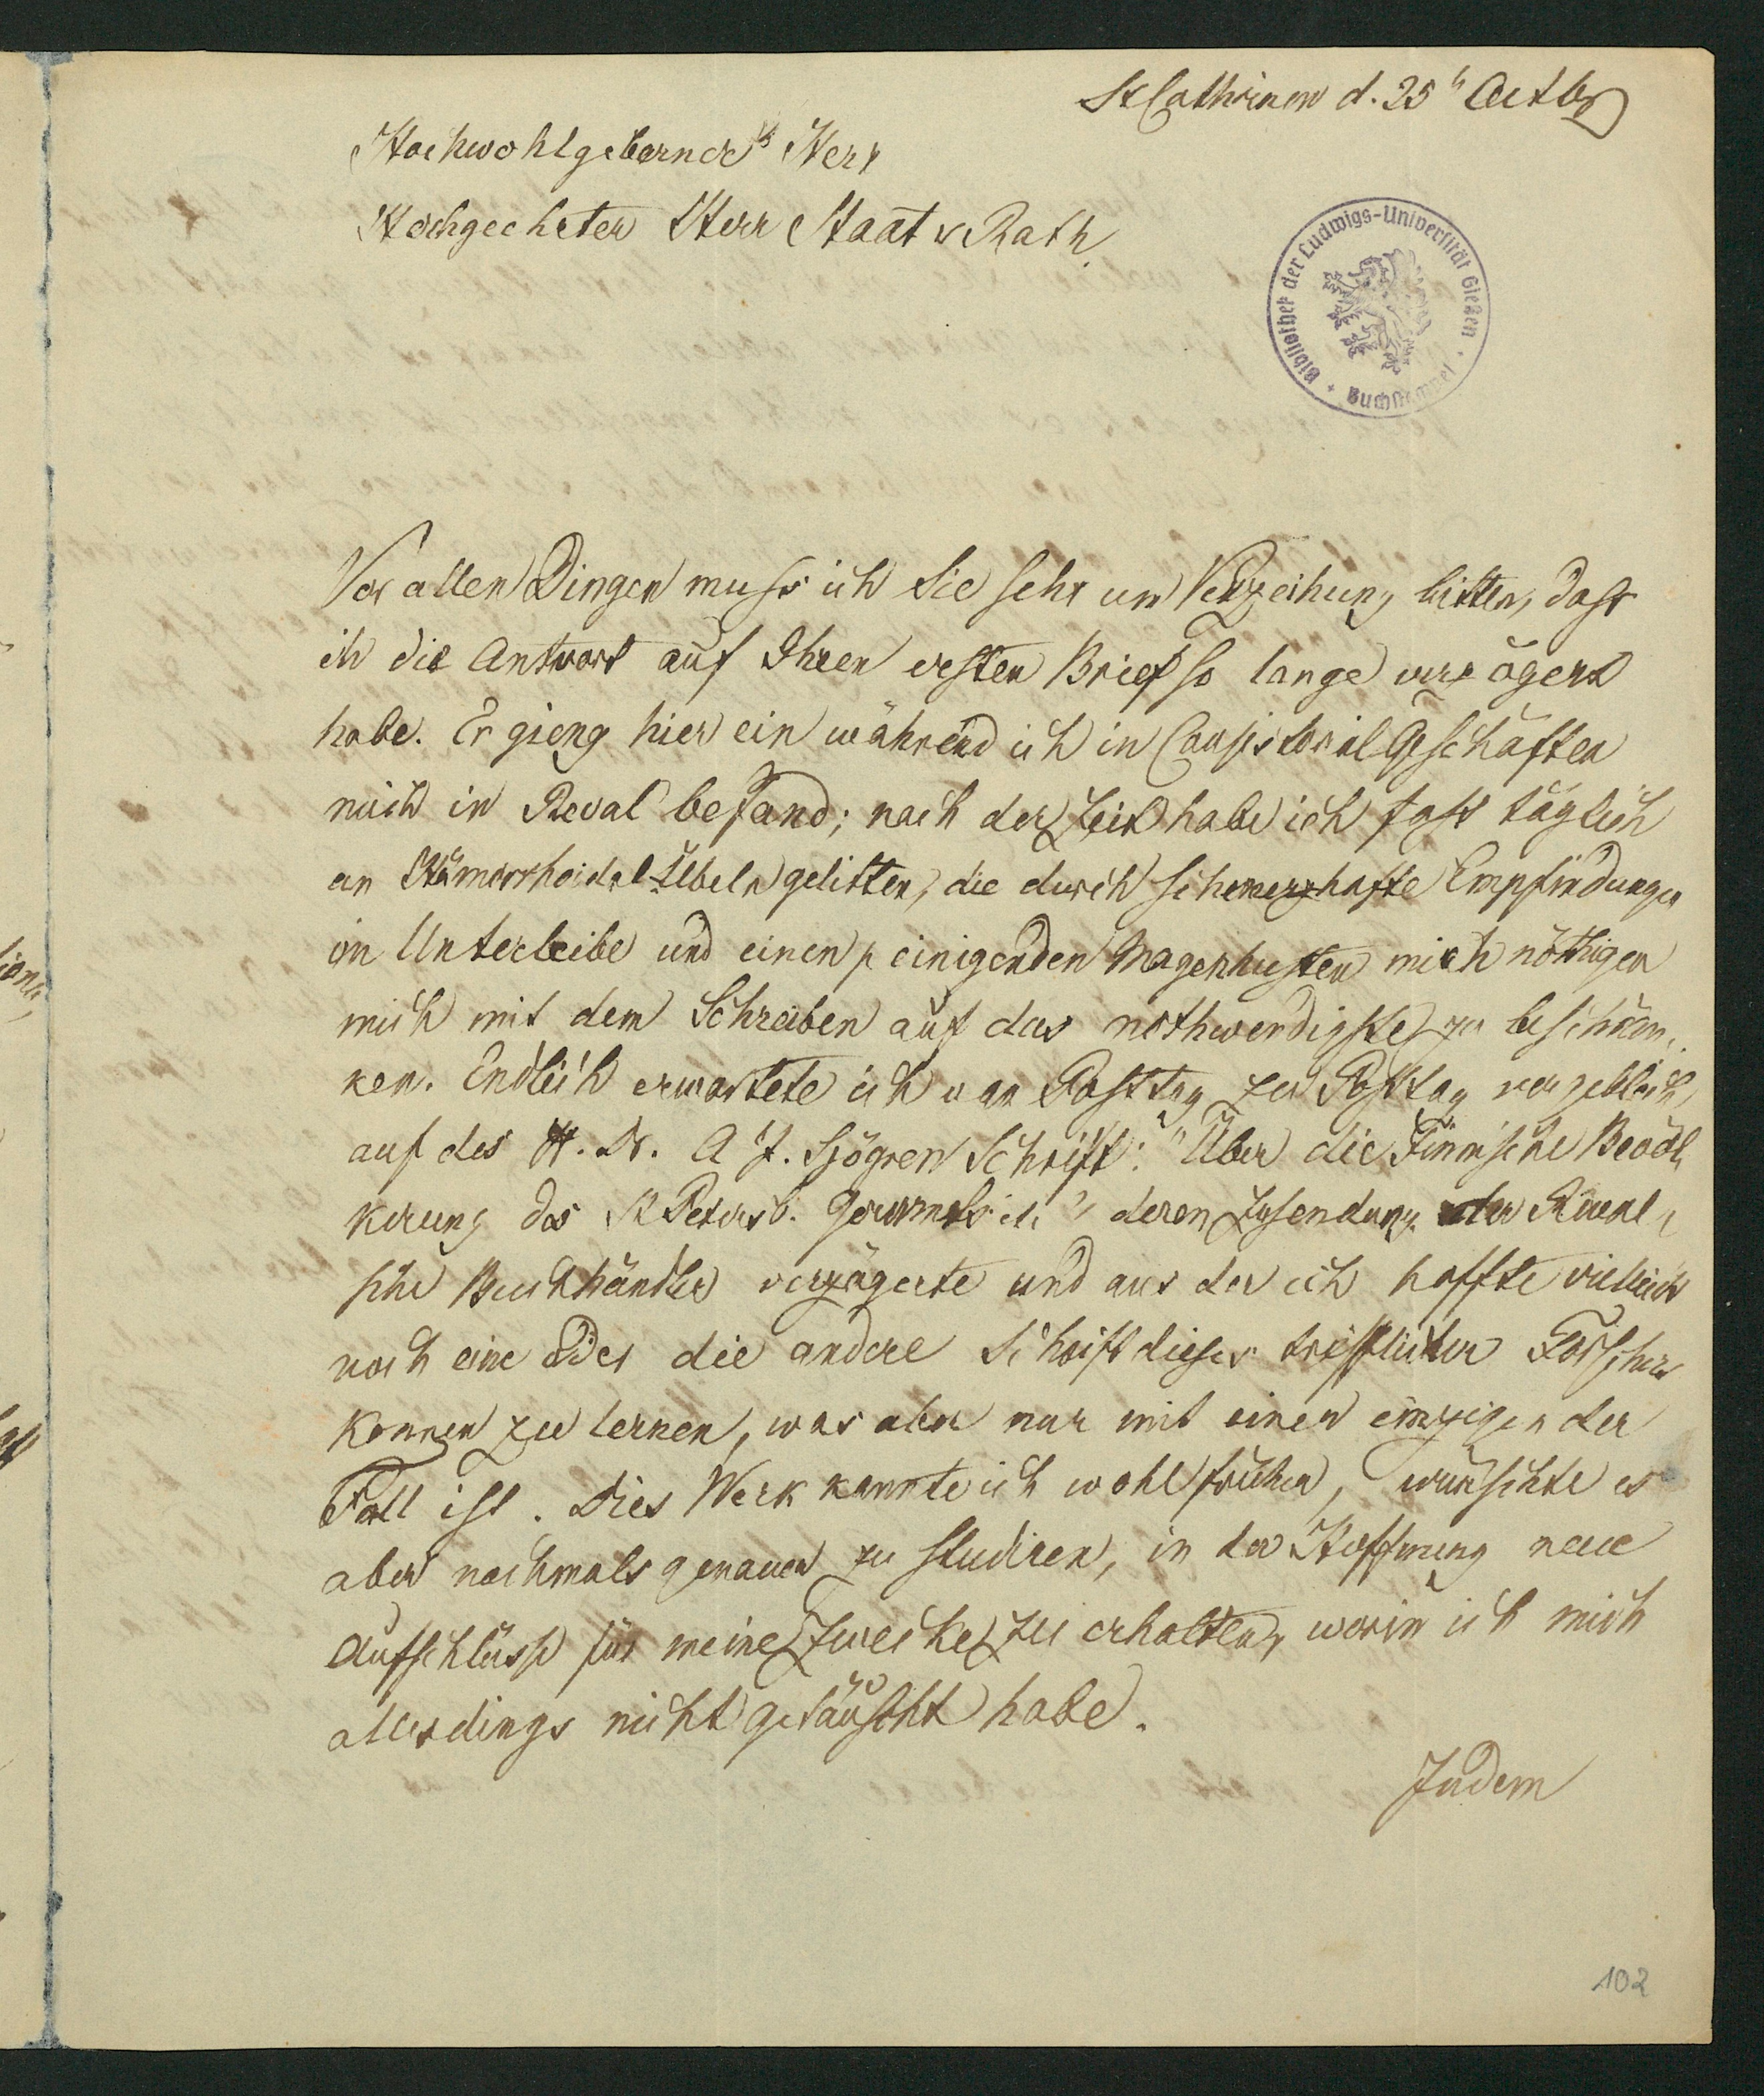 St Cathrinen d. 25ⁿ Octbr
Hochwohlgeborner Herr
Hochgeehrter Herr Staats Rath.
Bibliothek der Ludwigs-Universität Gießen
Buchstempel
Vor allen Dingen muss ich Sie sehr um Verzeihung bitten, dass
ich die Antwort auf Ihren ersten Brief so lange verzögert
habe. Er gieng hier ein während ich in Consistorial Geschäften
mich in Reval befand; nach der Zeit habe ich fast täglich
an Hämorrhoidal-Übeln gelitten, die durch schmerzhafte Empfindungen
im Unterleibe und einen peinigenden Magenhusten mich nöthigen
mich mit dem Schreiben auf das nothwendigste zu beschrän-
ken. Endlich erwartete ich von Posttag zu Posttag vergeblich
auf des H. Dr. A J. Sjögren Schrift: "Über die Finnische Bevöl-
kerung des St Petersb. Gouvrnts etc" deren Zusendung der Reval-
sche Buchhändler verzögerte und aus der ich hoffte vielleicht
noch eine oder die andere Schrift dieses trefflichen Forschers
kennen zu lernen, was aber nur mit einer einzigen der
Fall ist. Dies Werk kannte ich wohl früher, wünschte es
aber nochmals genauer zu studiren, in der Hoffnung neue
Aufschlüsse für meine Zwecke zu erhalten, worin ich mich
allerdings nicht getäuscht habe.
Indem
102